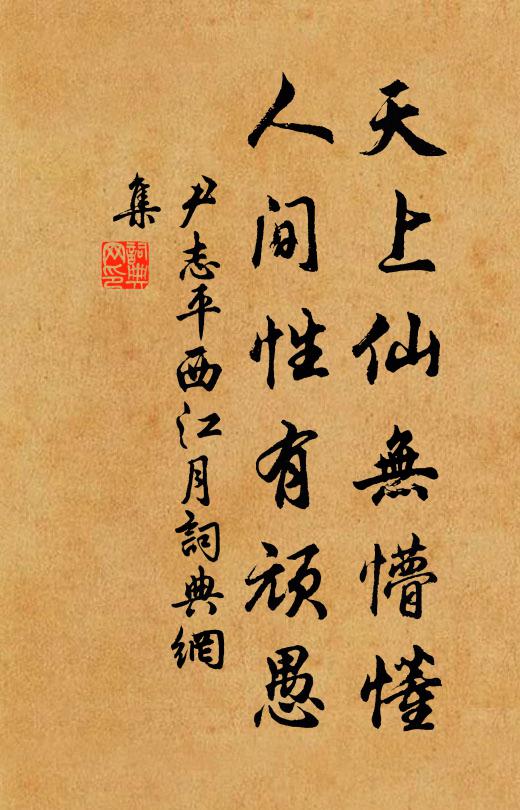 天上仙無懵懂
人間性有頑愚
尹志平西江月詞典網
集
詞典
网印